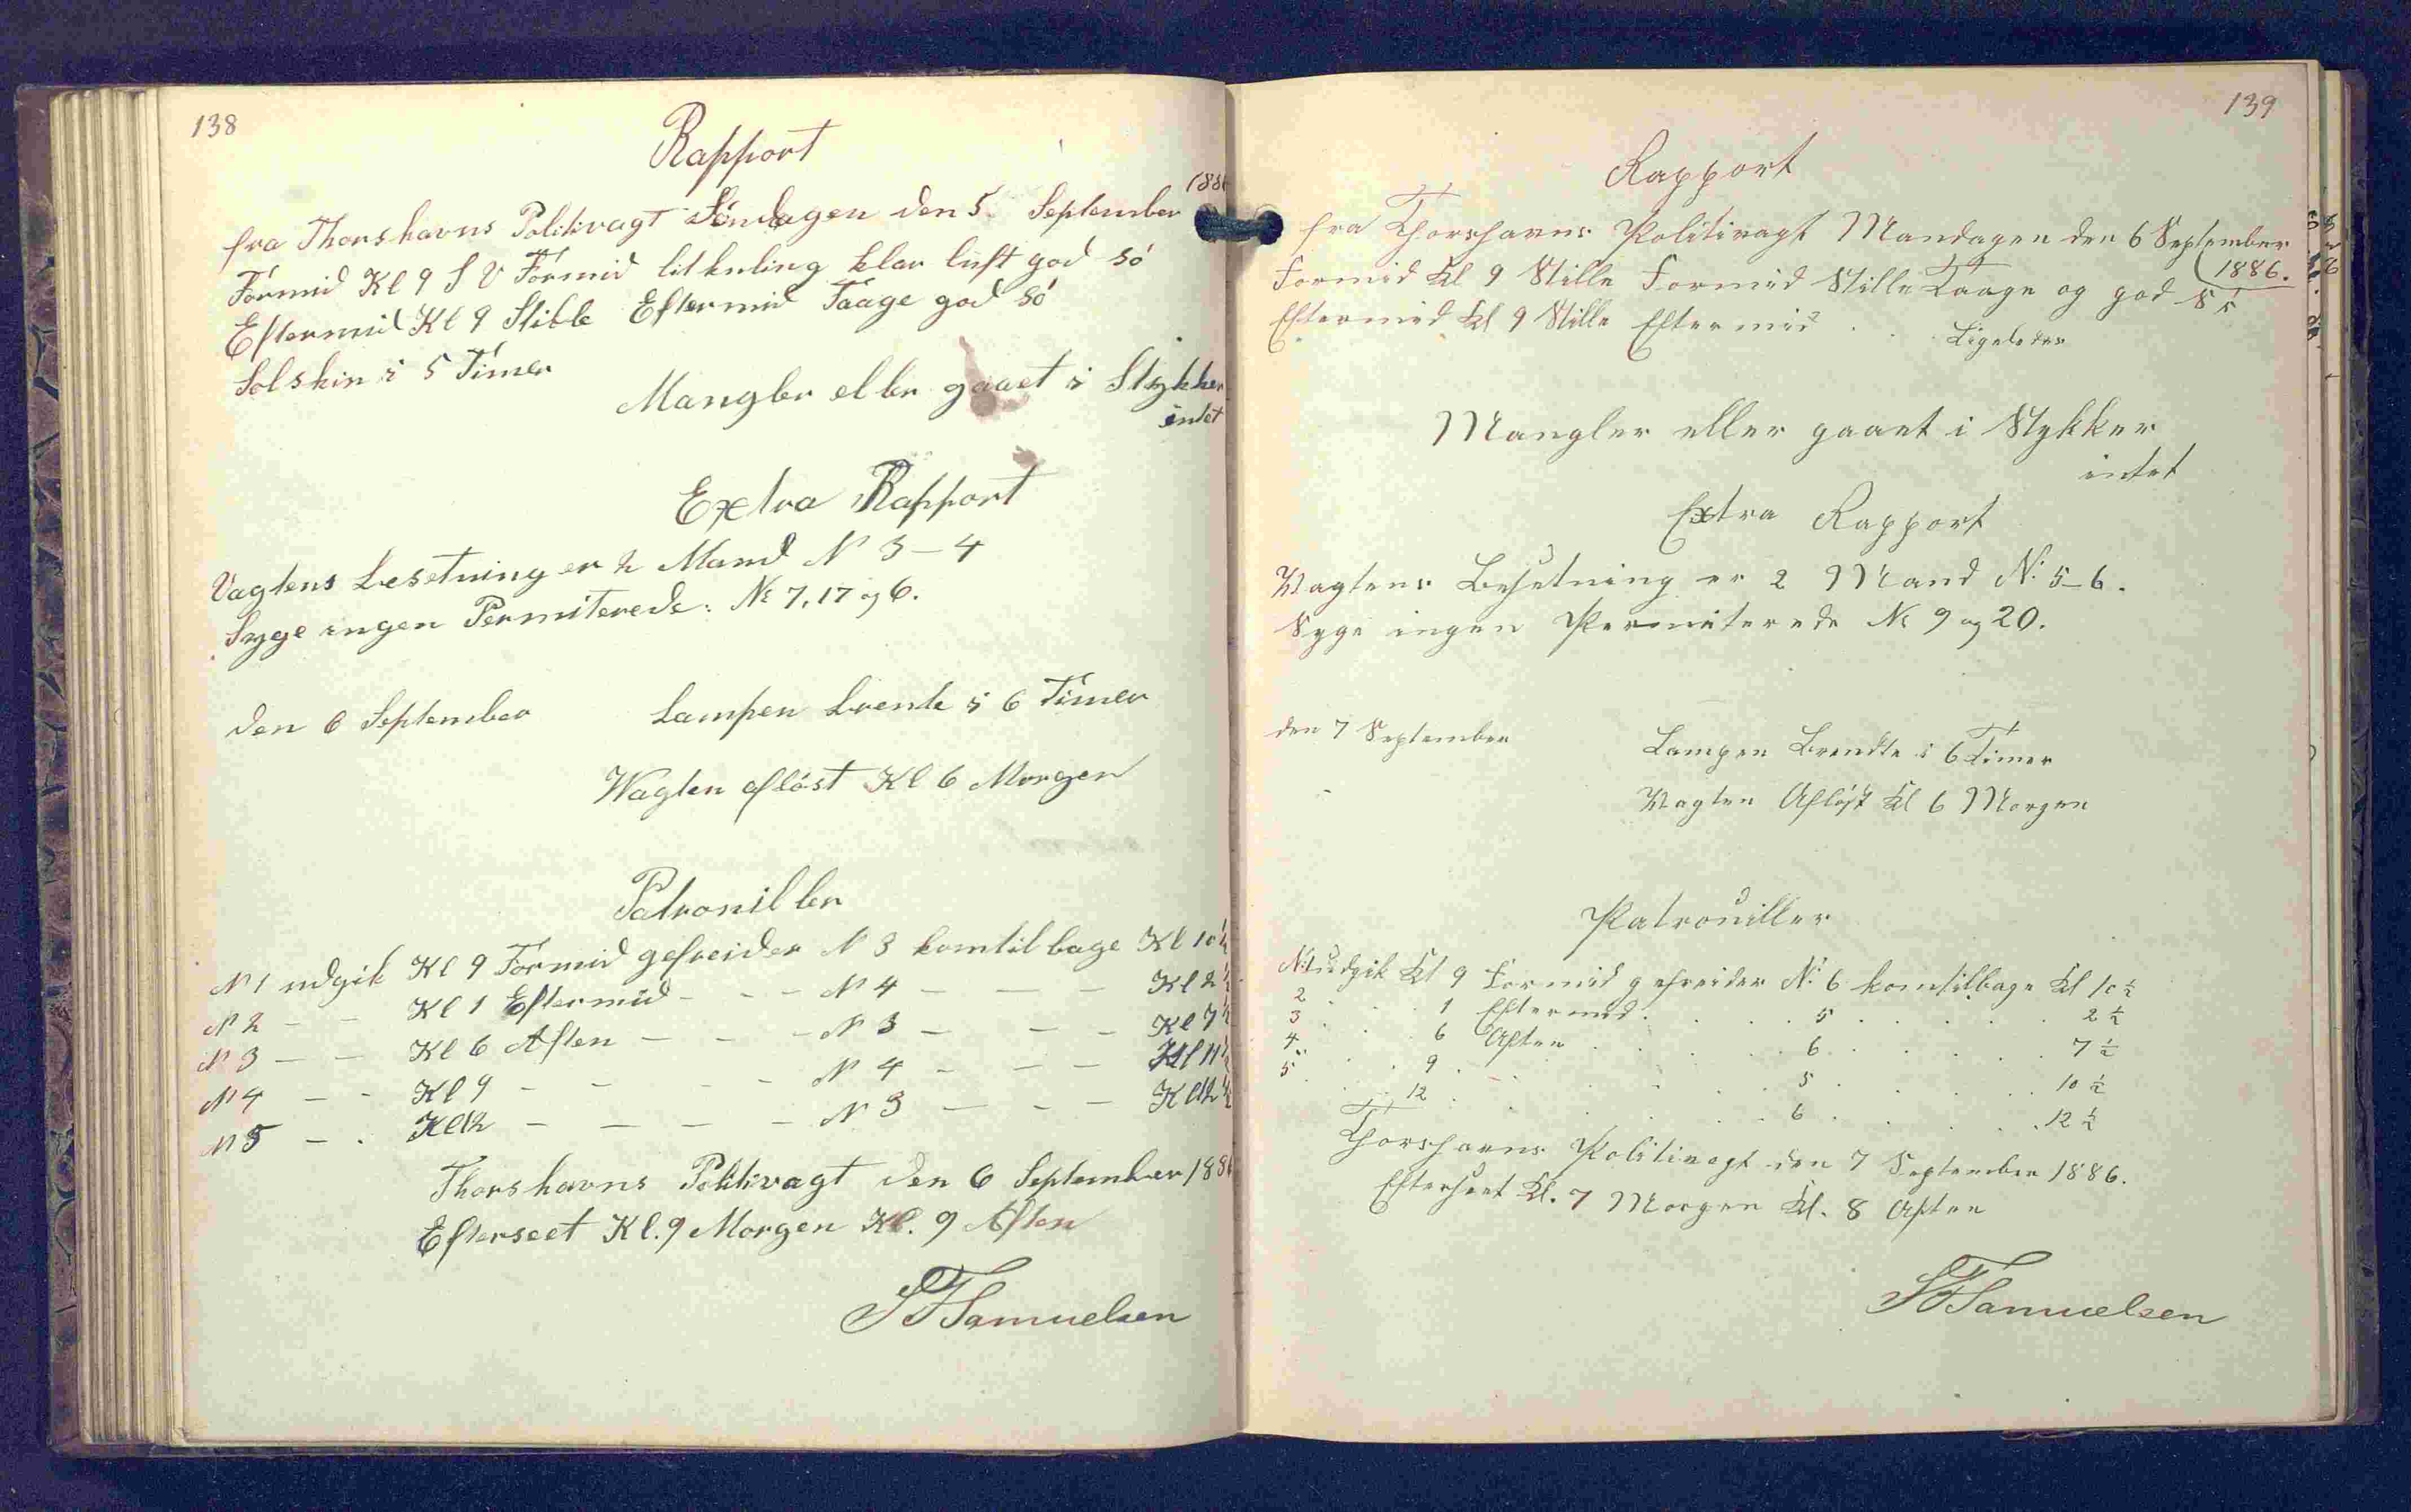 138
Rapport
1886
fra Thorshavns Politivagt Söndagen den 5. September
Formid Kl 9 S V Formid litkuling klar luft god Só
Eftermid Kl 9 Stille Eftermid Taage god Só
Solskin i 5 Timer
Mangler eller gaaet i Stykker
intet
Extra Rapport
Vagtens besetning er 2 Mand N 3-4
Syge ingen Permiterede: No 7, 17 og 6.
den 6 September Lampen brente i 6 Timer
Wagten aflöst Kl 6 Morgen
Patrouiller
N 1 udgik Kl 9 Formid gefreider N 3 komtilbage Kl 10½
N 2 - - Kl 1 Eftermid - - - N 4 - - - Kl 2½
N 3 - - Kl 6 Aften - - - N 3 - - - Kl 7½
N 4 - - Kl 9 - - - - N 4 - - - Kl 11½
N 5 - . Kl 12 - - - - N 3 - - - Kl 12½
Thorshavns Politivagt den 6 September 1886
Efterseet Kl. 9 Morgen Kl. 9 Aften
SFSamuelsen
139
Rapport
fra Thorshavns Politivagt Mandagen den 6 September
1886.
Formid Kl 9 Stille Formid Stille Taage og god Sö
Eftermid Kl 9 Stille Eftermid . . Ligeledes
Mangler eller gaaet i Stykker
intet
Extra Rapport
Wagtens Besetning er 2 Mand N: 5-6.
Syge ingen Permiterede No 9 og 20.
den 7 September
Lampen Brendte i 6 Timer
Wagten Aflöst Kl 6 Morgen
Patrouiller
N: 1 udgik Kl 9 Formid gefreider N: 6 komtilbage Kl 10½
2 . . 1 Eftermid. . . . 5 . . . . 2½
3 . . 6 Aften . . . . 6 . . . . 7½
4 . . 9 . . . . . 5 . . . . 10½
5 . . 12 . . . . . 6 . . . . 12½
Thorshavns Politivagt den 7 September 1886.
Efterseet Kl. 7 Morgen Kl. 8 Aften
SFSamuelsen